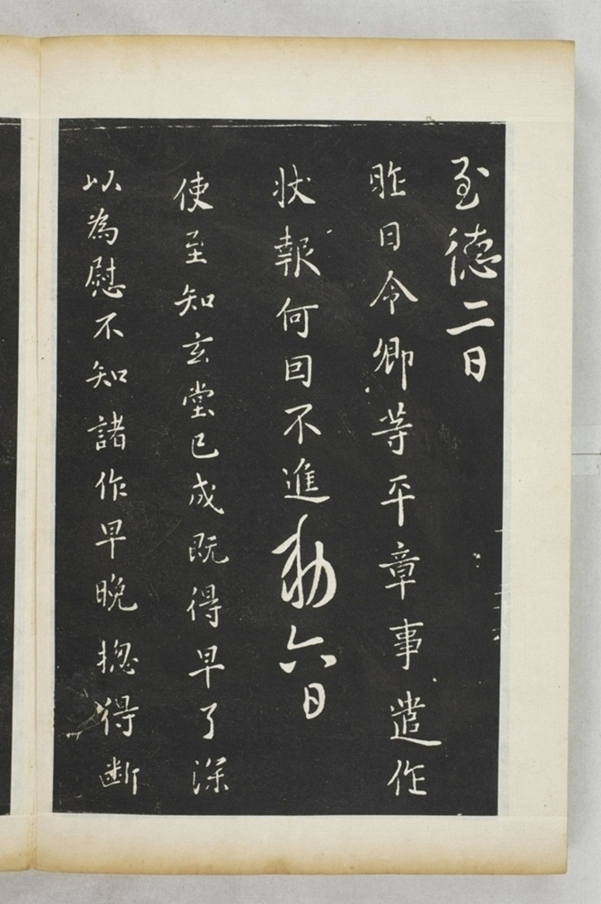 至德二日
昨日令卿等平章事遣作
狀報何因不進勅六日
使至知玄堂已成既得早了深
以為慰不知諸作早晚揔得斷